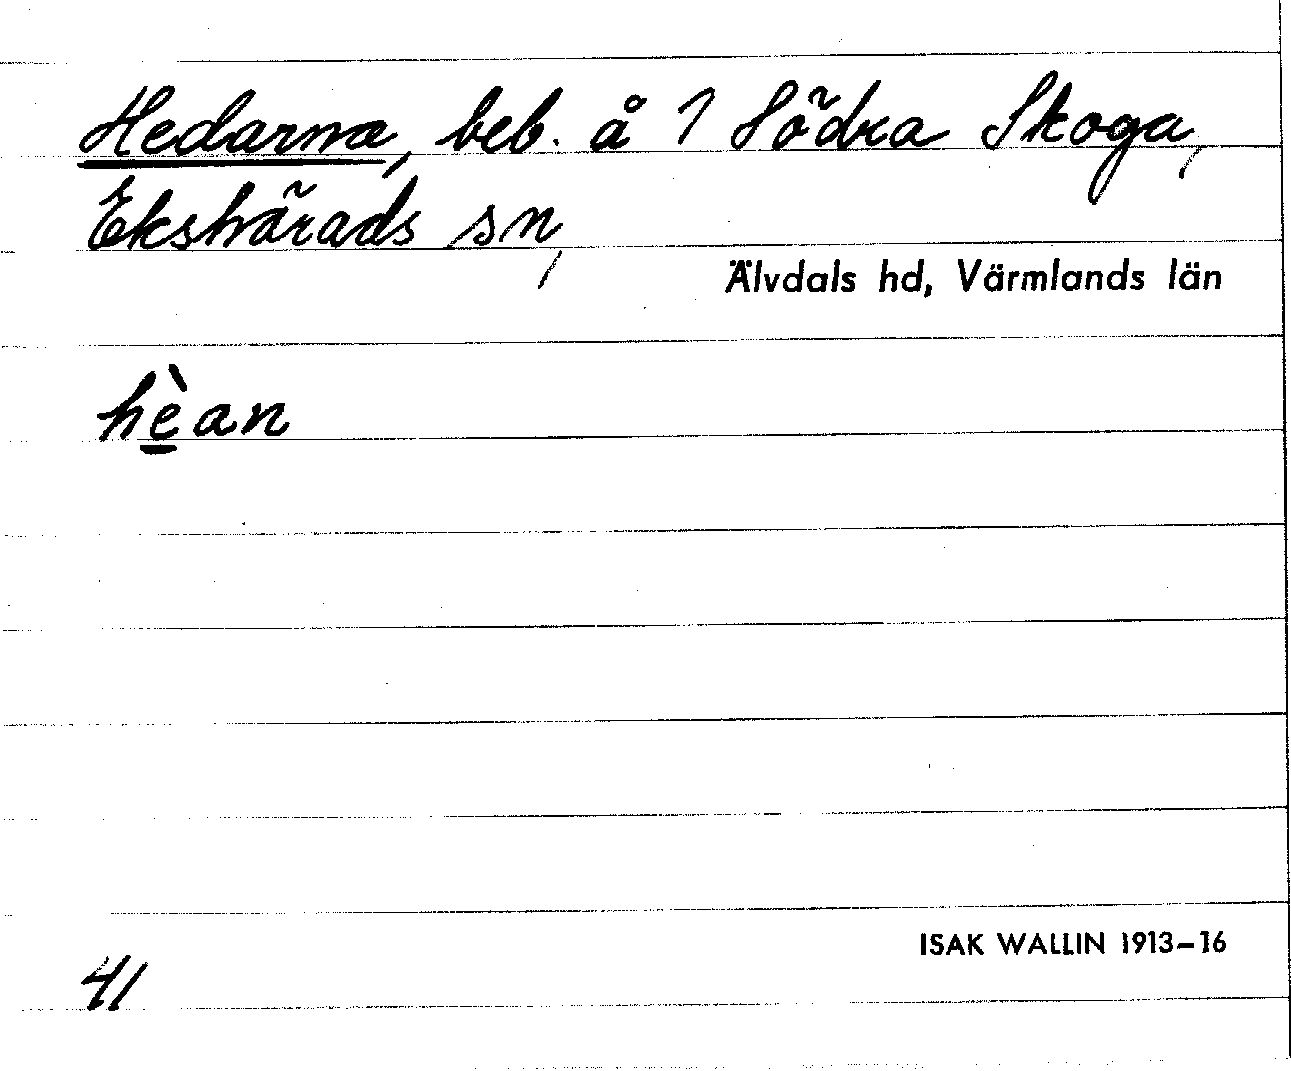 Hedarna, beb. å 1 Södra Skoga,
Ekshärads sn,
Älvdals hd, Värmlands län
hèan
ISAK WALLIN 1913–16
41